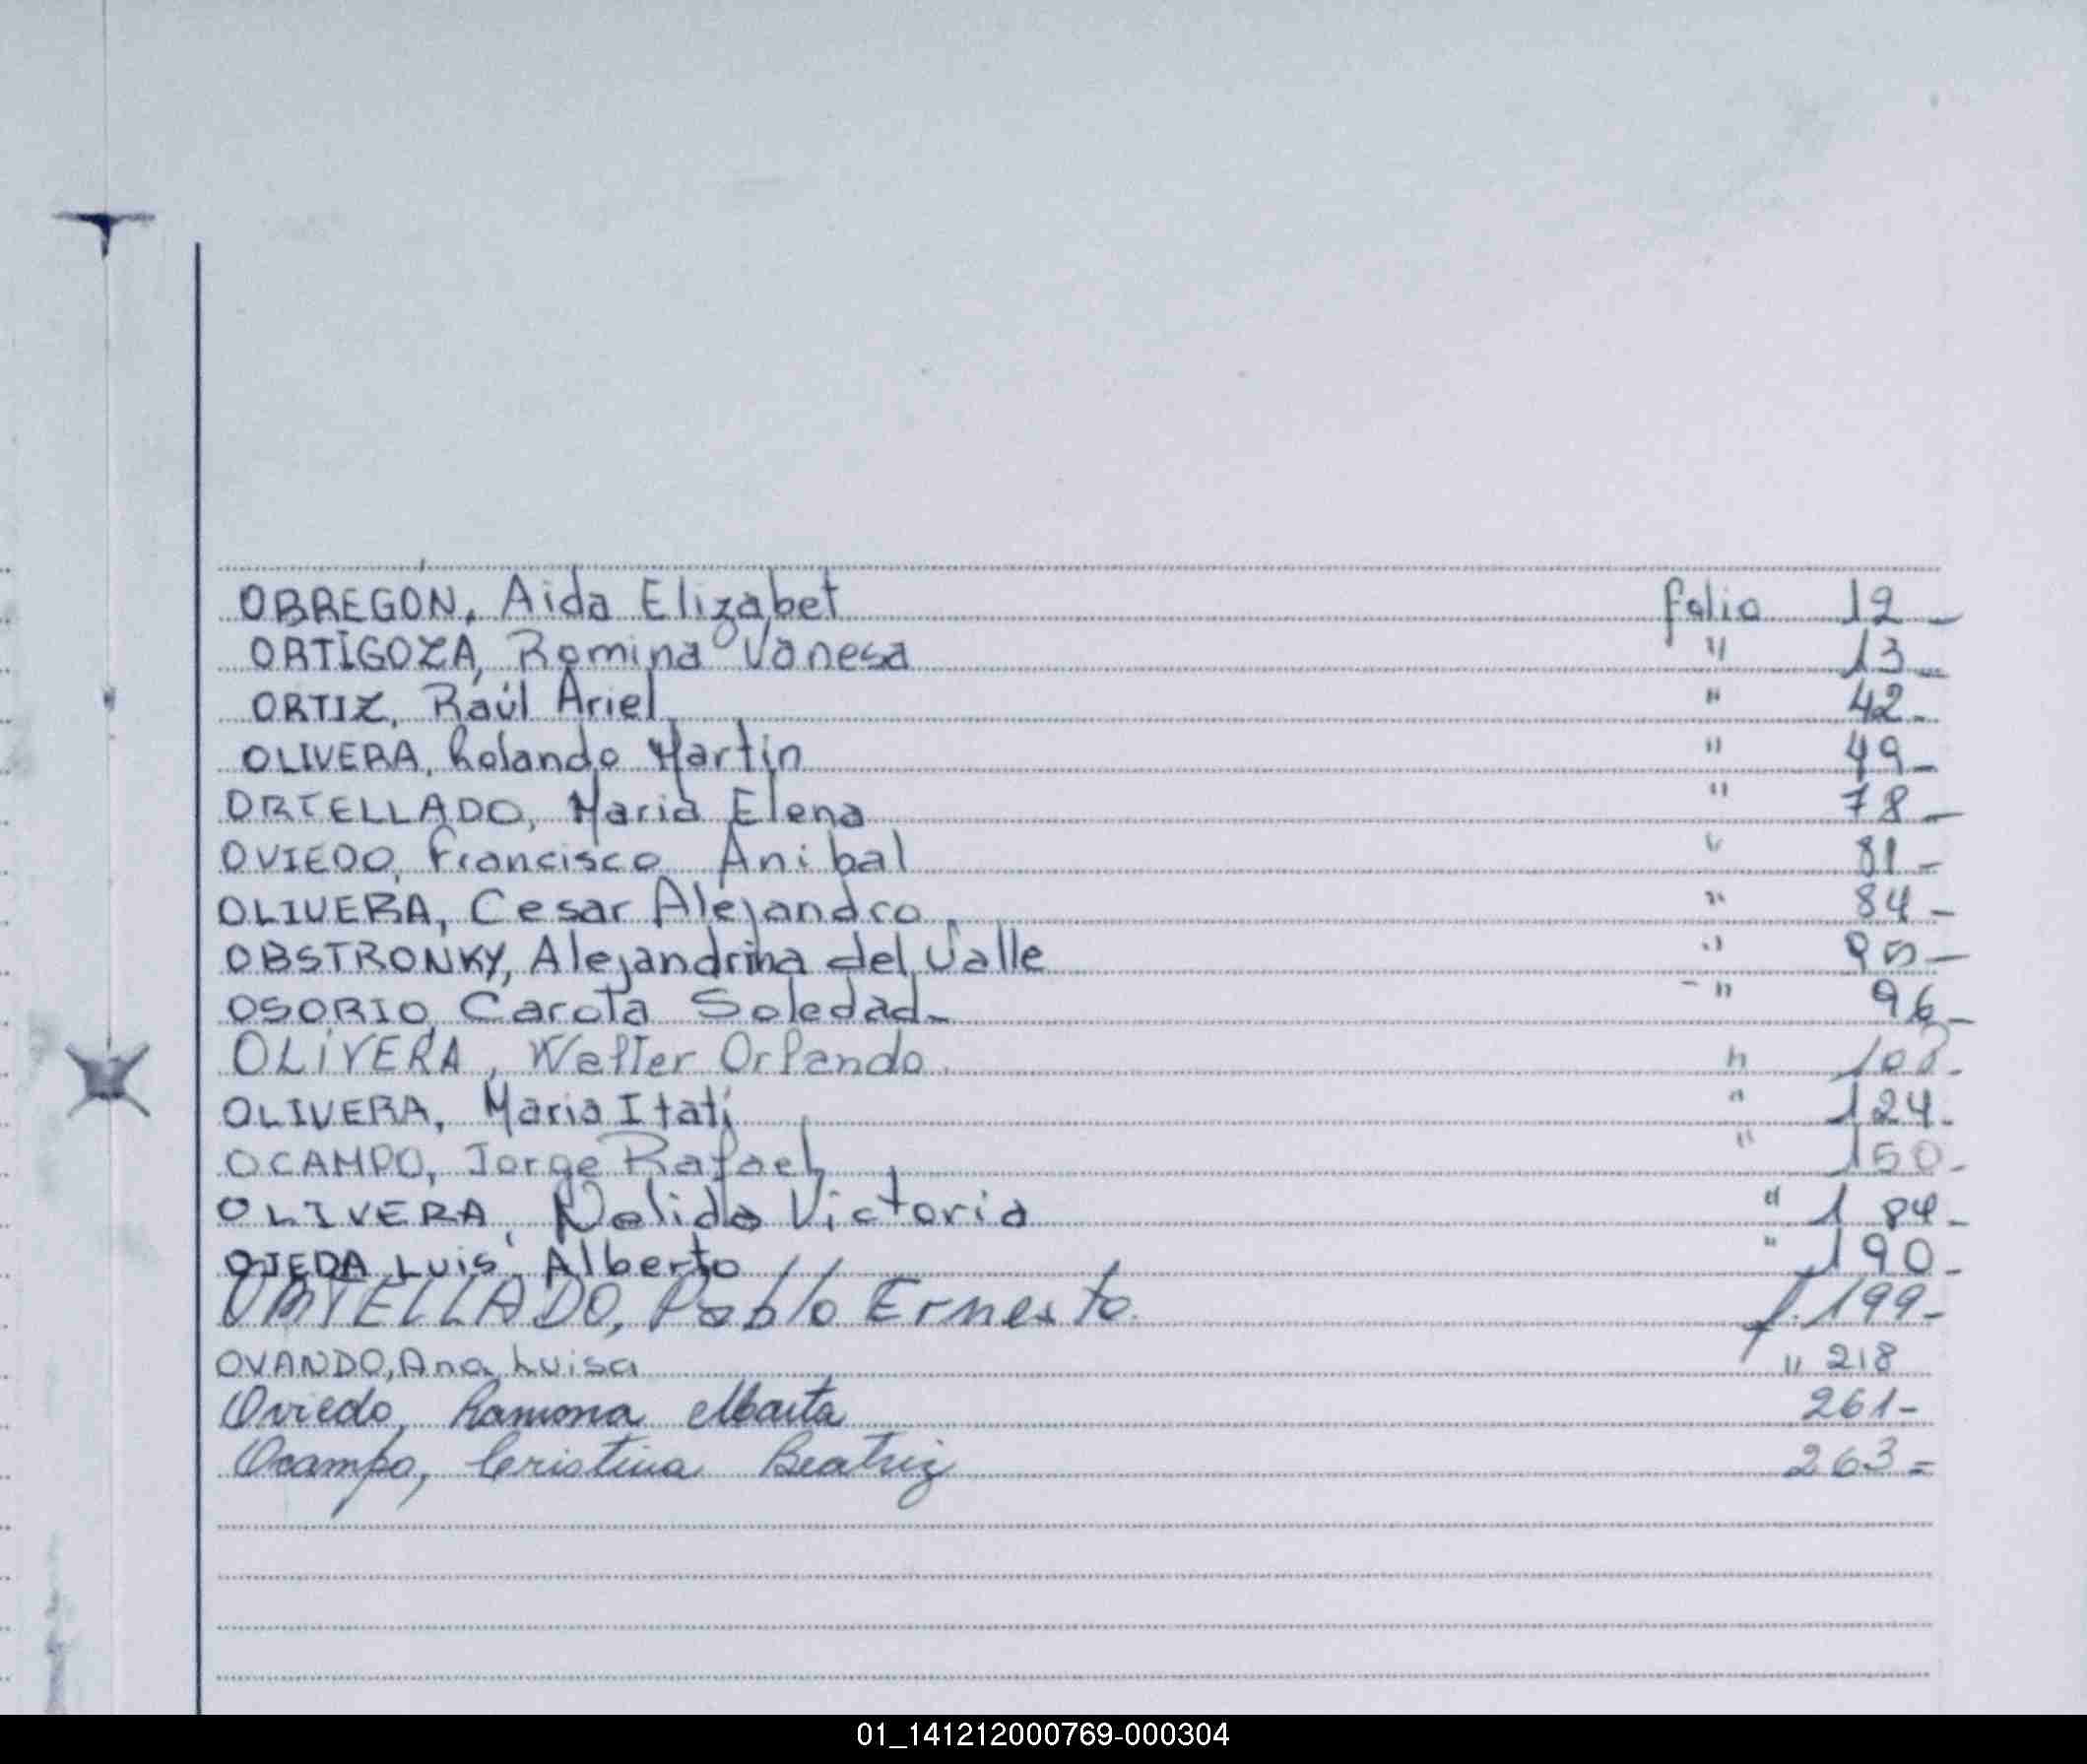 OBREGÓN, Aida Elizabet folio 12-
ORTIGOZA, Romina Vanesa " 13-
ORTIZ, Raúl Ariel " 42-
OLIVERA, Rolando Martin " 49-
ORTELLADO, Maria Elena " 78-
OVIEDO, Francisco Anibal " 81-
OLIVERA, Cesar Alejandro " 84-
OBSTRONKY, Alejandrina del Valle " 95-
OSORIO, Carola Soledad- " 96-
OLIVERA, Walter Orlando. " 108-
OLIVERA, Maria Itatí " 124-
OCAMPO, Jorge Rafael " 150-
OLIVERA, Nelida Victoria " 184-
OJEDA Luis Alberto " 190-
ORTELLADO, Pablo Ernesto. f. 199-
OVANDO, Ana Luisa " 218
Oviedo, Ramona Marta 261-
Ocampo, Cristina Beatriz 263=
01_141212000769-000304